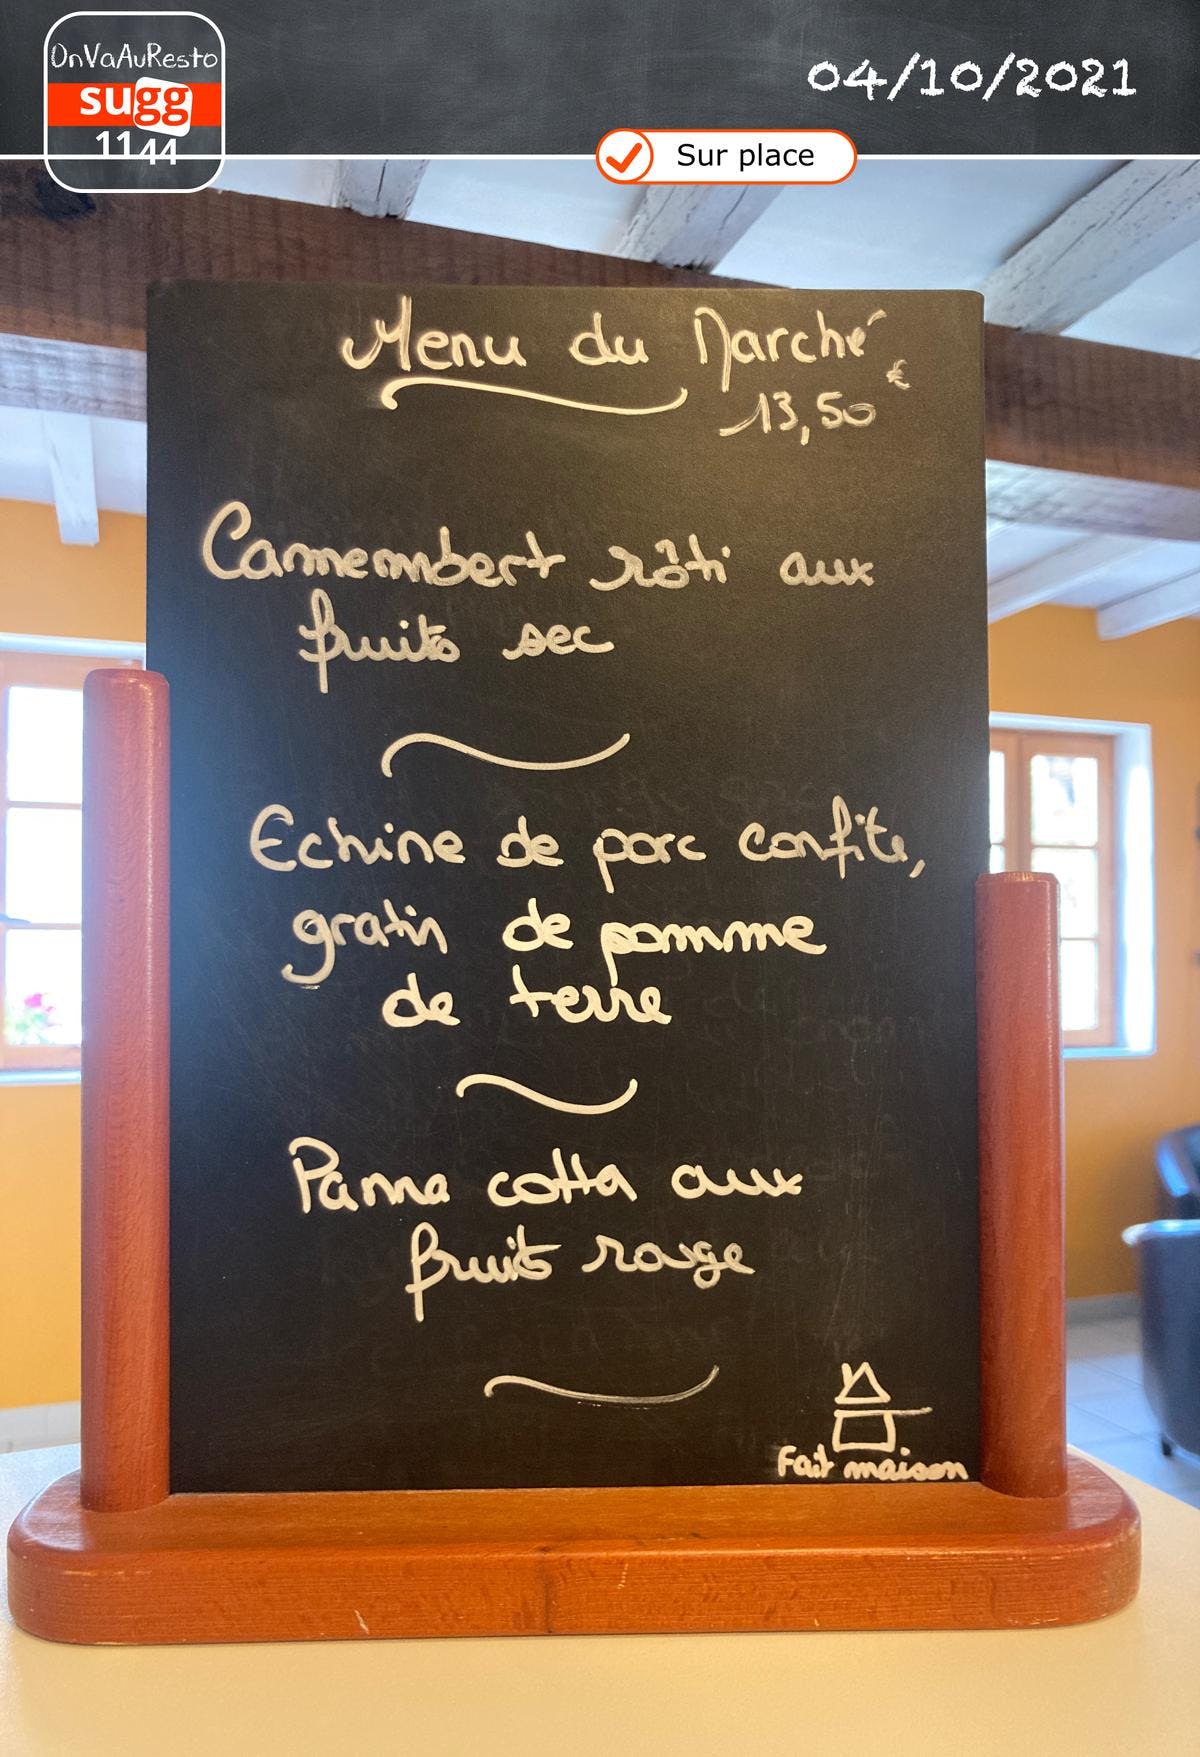 OnVaAuResto
sugg
1144
04/10/2021
Sur place
Menu du Marché
13,50 €
Camembert rôti aux
fruits sec
Echine de porc confite,
gratin de pomme
de terre
Panna cotta aux
fruits rouge
Fait maison